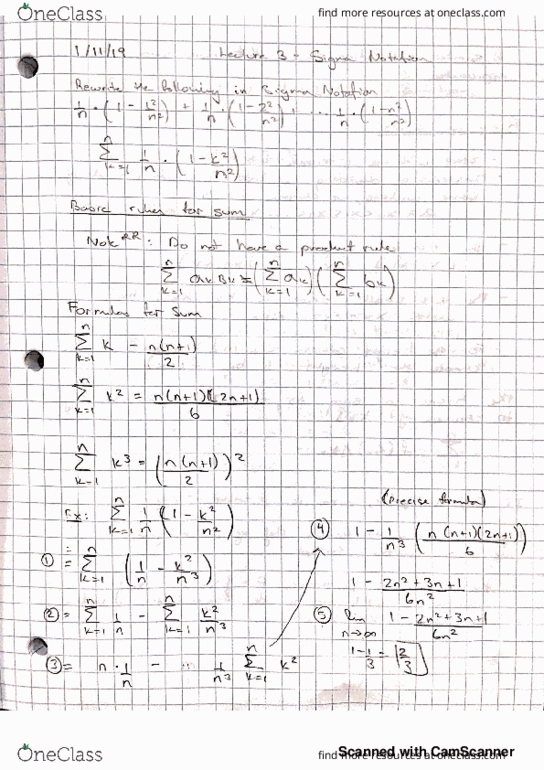 OneClass find more resources at oneclass.com
1/11/19 Lecture 3 - Sigma Notation
Rewrite the following in Sigma Notation
1/n · (1 - 1²/n²) + 1/n · (1 - 2²/n²) + ... 1/n · (1 - n²/n²)
n Σ k=1 1/n · (1 - k²/n²)
Basic rules for sum
Note : Do not have a product rule
n Σ k=1 ak Bk ≠ (n Σ k=1 ak) (n Σ k=1 bk)
Formulas for Sum
n Σ k=1 k - n(n+1)/2
n Σ k=1 k² = n(n+1)(2n+1)/6
n Σ k=1 k³ = (n(n+1)/2)²
Ex: n Σ k=1 1/n (1 - k²/n²)
① = n Σ k=1 (1/n - k²/n³)
② = n Σ k=1 1/n n Σ k=1 k²/n³
③ = n · 1/n - 1/n³ n Σ k=1 k²
(precise formula)
④ 1 - 1/n³ (n(n+1)(2n+1)/6)
1 - 2n²+3n+1/6n²
⑤ lim n→∞ 1 - 2n²+3n+1/6n²
1 - 1/3 = 2/3
OneClass find more resources at oneclass.com
Scanned with CamScanner